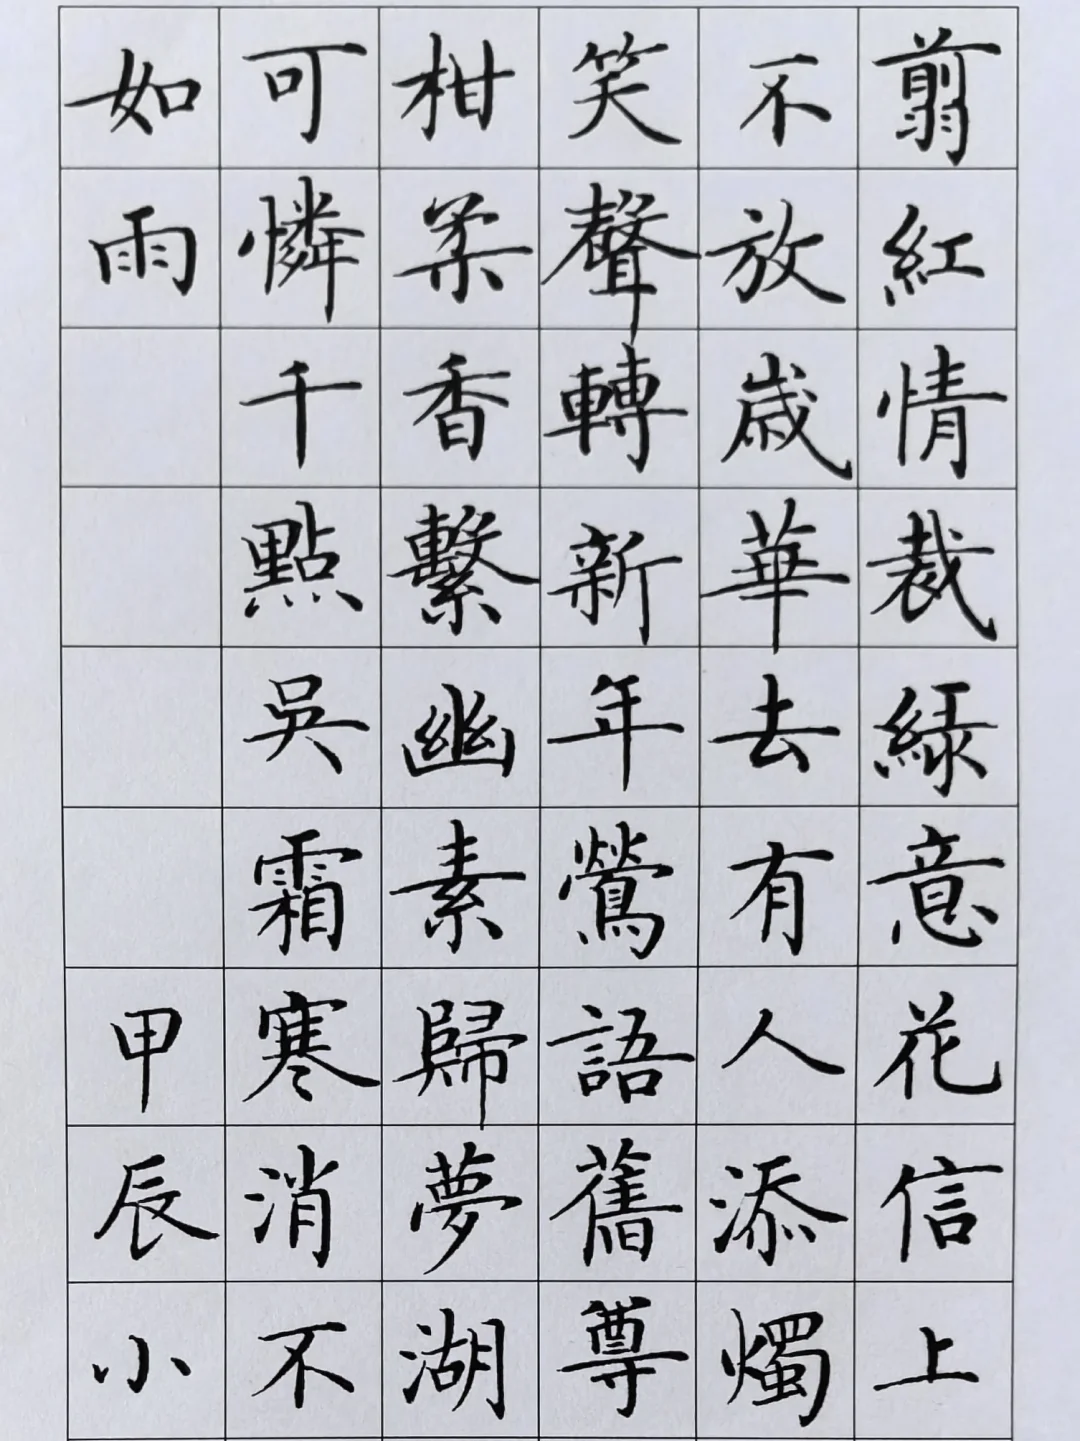 剪紅情裁綠意花信上
不放歲華去有人添燭
笑聲轉新年鶯語舊尊
柑柔香繫幽素歸夢湖
可憐千點吳霜寒消不
如雨甲辰小